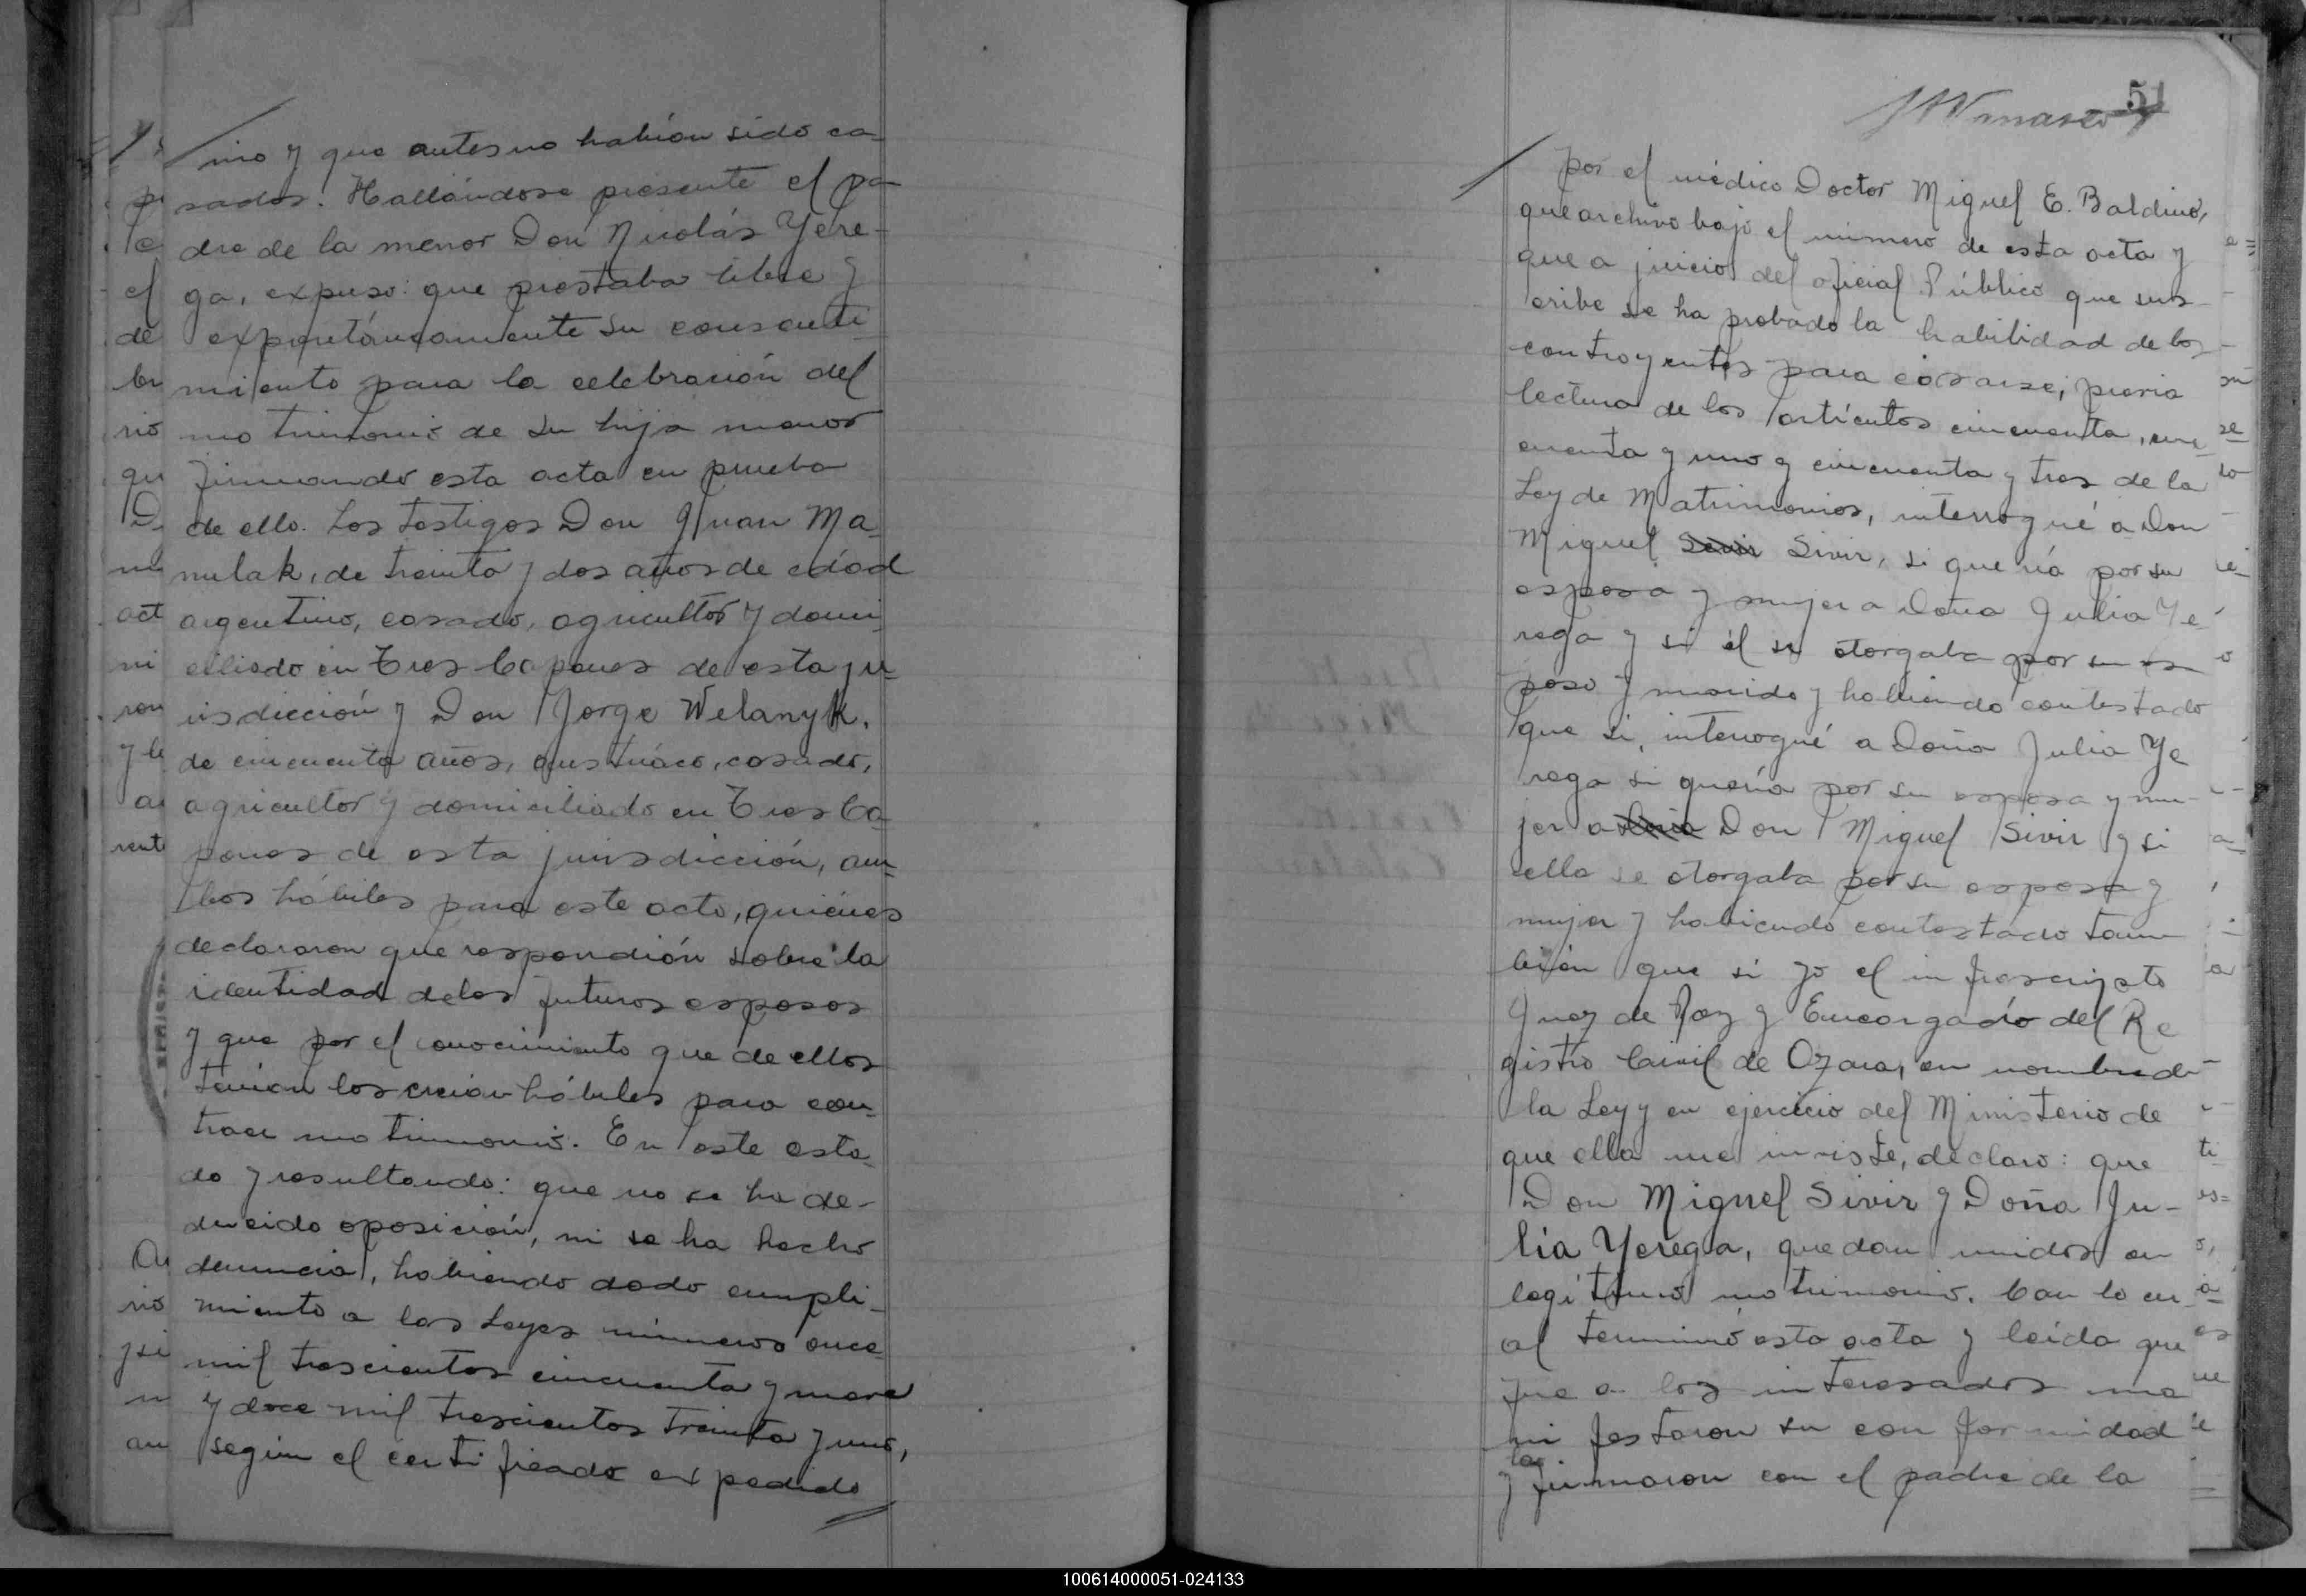 mo y que antes no habían sido ca-
sados. Hallándose presente el pa-
dre de la menor Don Nicolás Yere-
ga, expuso: que prestaba libre y
expontáneamente su consenti
miento para la celebración del
matrimonio de su hija menor
firmando esta acta en prueba
de ello. Los testigos Don Juan Ma-
nulak, de treinta y dos años de edad
argentino, casado, agricultor y domi-
ciliado en Tres Capones de esta ju-
risdicción y Don Jorge Welanyk,
de cincuenta años, austriaco, casado,
agricultor y domiciliado en Tres Ca-
pones de esta jurisdicción, am-
bos hábiles para este acto, quiénes
declararon que respondían sobre la
identidad de los futuros esposos
y que por el conocimiento que de ellos
tenían los creían hábiles para con-
traer matrimonio. En este esta-
do y resultando: que no se ha de-
ducido oposición, ni se ha hecho
denuncia, habiendo dado cumpli-
miento a las Leyes números once
mil trescientos cincuenta y nueve
y doce mil trescientos treinta y uno,
según el certificado expedido
51
por el médico Doctor Miguel E. Baldino,
que archivo bajo el número de esta acta y
que a juicio del oficial Público que sus-
cribe se ha probado la habilidad de los
contrayentes para casarse; previa
lectura de los artículos cincuenta, cin-
cuenta y uno y cincuenta y tres de la
Ley de Matrimonios, interrogué a Don
Miguel Sivir, si quería por su
esposa y mujer a Doña Julia Ye-
rega y si él se otorgaba por su es
poso y marido y habiendo contestado
que si, interrogué a Doña Julia Ye
rega si quería por su esposa y mu-
jer a Don Miguel Sivir y si
ella se otorgaba por su esposa y
mujer y habiendo contestado tam
bién que si yo el infrascripto
Juez de Paz y Encargado del Re
gistro Civil de Ozara, en nombre de
la Ley y en ejercicio del Ministerio de
que ella me inviste, declaro: que
Don Miguel Sivir y Doña Ju-
lia Yerega, quedan unidos en
legítimo matrimonio. Con lo cu
al terminó esta acta y leída que
fue a los interesados ma
nifestaron su conformidad
y la firmaron con el padre de la
100614000051-024133